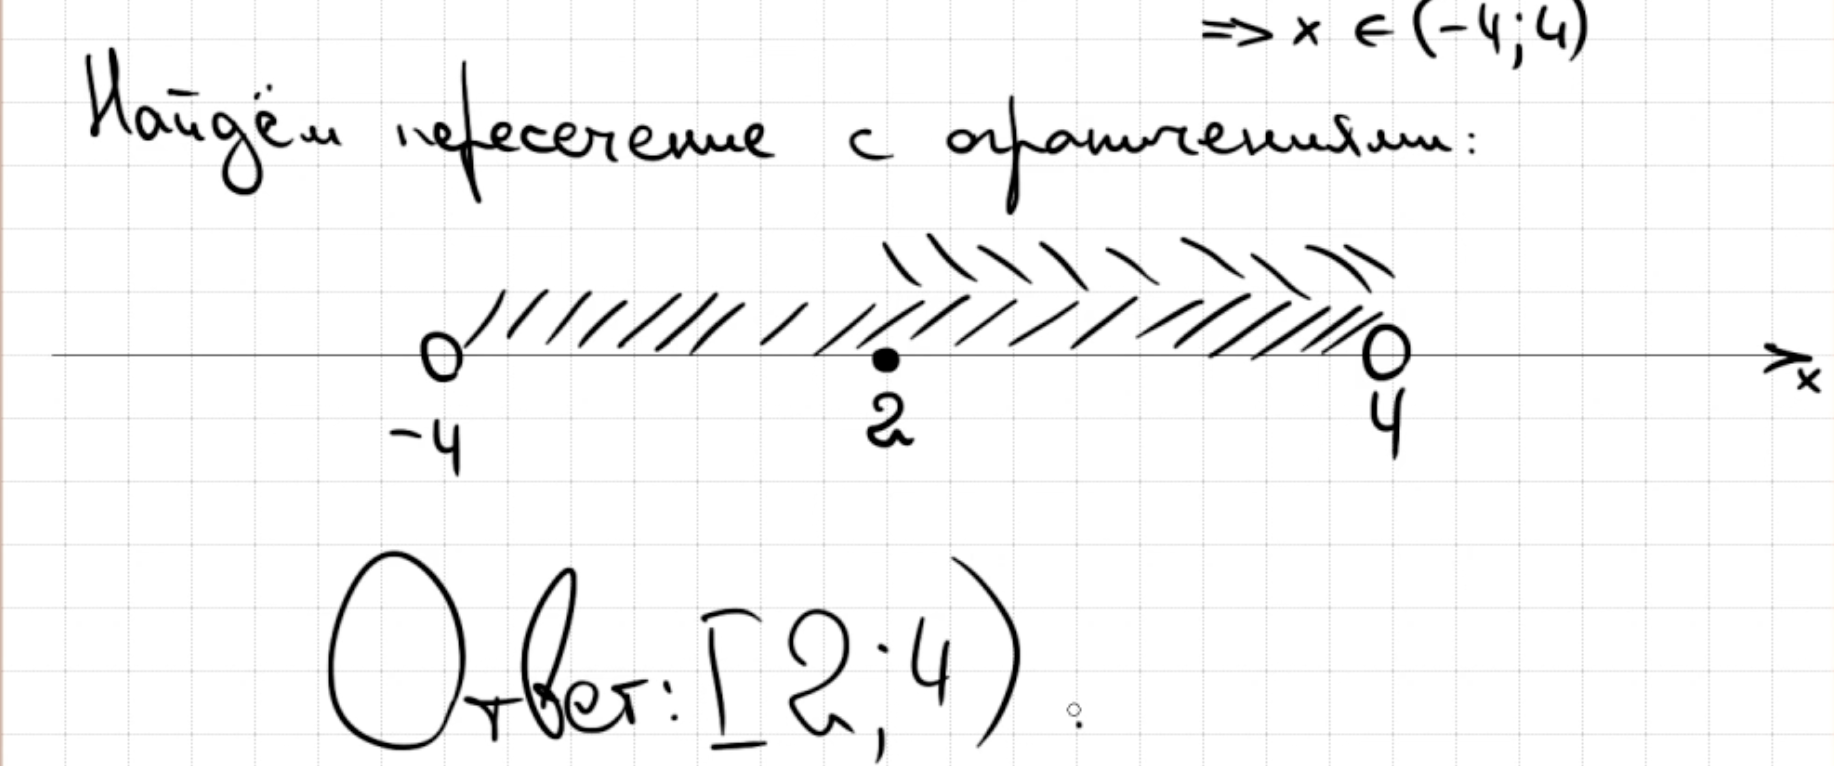 => x ∈ (-4;4)
Найдём пересечение с ограничениями:
-4 2 4 x
Ответ: [2;4).